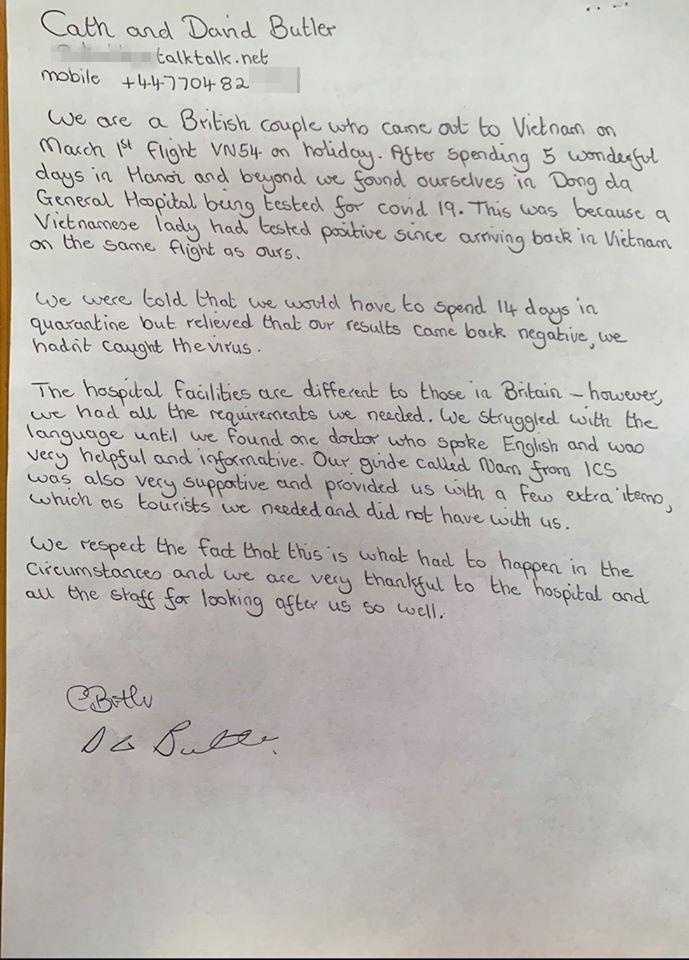 Cath and David Butler
talktalk.net
mobile +44770482
We are a British couple who came out to Vietnam on
March 1st flight VN54 on holiday. After spending 5 wonderful
days in Hanoi and beyond we found ourselves in Dong da
General Hospital being tested for covid 19. This was because a
Vietnamese lady had tested positive since arriving back in Vietnam
on the same flight as ours.
We were told that we would have to spend 14 days in
quarantine but relieved that our results came back negative, we
hadn't caught the virus.
The hospital facilities are different to those in Britain – however,
we had all the requirements we needed. We struggled with the
language until we found one doctor who spoke English and was
very helpful and informative. Our guide called Nam from ICS
was also very supportive and provided us with a few extra items,
which as tourists we needed and did not have with us.
We respect the fact that this is what had to happen in the
circumstances and we are very thankful to the hospital and
all the staff for looking after us so well.
CButler
D G Butler